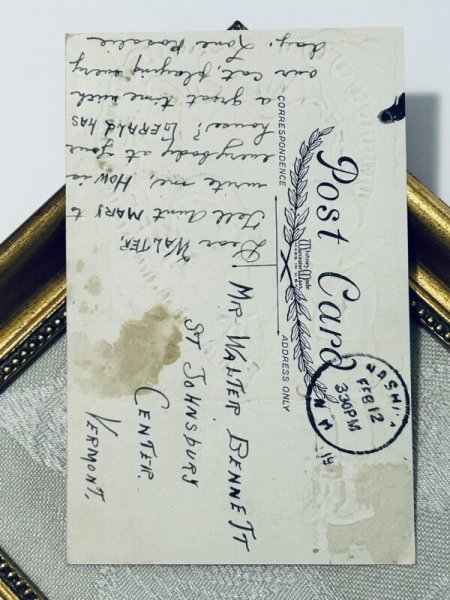 Post Card
CORRESPONDENCE
Whitney Made
Worcester, Mass
ADDRESS ONLY
NASHUA
FEB 12
330PM
N.H.
19
Dear WALTER,
Tell Aunt MARY to
write me. How is
everybody at your
house? GERALD has
a great time with
our cat, playing every
day. Love Rosalie
MR WALTER BENNETT
ST JOHNSBURY
CENTER.
VERMONT.